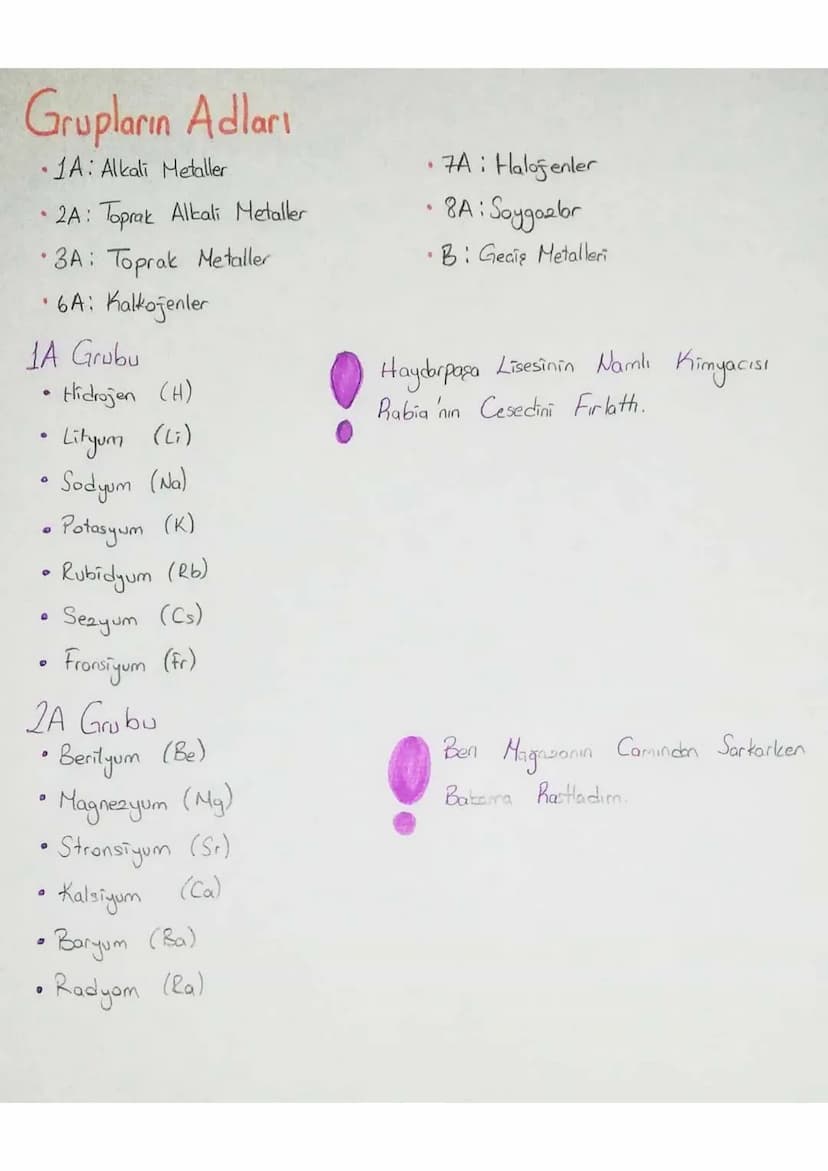 Grupların Adları
• 1A: Alkali Metaller
• 2A: Toprak Alkali Metaller
• 3A: Toprak Metaller
• 6A: Kalkojenler
• 7A: Halojenler
• 8A: Soygazlar
• B: Geçiş Metalleri
1A Grubu
• Hidrojen (H)
• Lityum (Li)
• Sodyum (Na)
• Potasyum (K)
• Rubidyum (Rb)
• Sezyum (Cs)
• Fransiyum (Fr)
! Haydarpaşa Lisesinin Namlı Kimyacısı
Rabia'nın Cesedini Fırlattı.
2A Grubu
• Berilyum (Be)
• Magnezyum (Mg)
• Stronsiyum (Sr)
• Kalsiyum (Ca)
• Baryum (Ba)
• Radyom (Ra)
! Ben Magazanın Camından Sarkarken
Babama Rastladım.